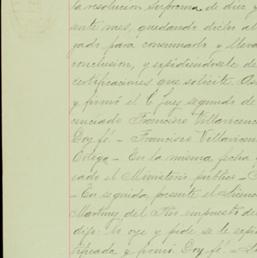 la resolucion Suprema de diez y
ente mes, quedando dicho al
gado para consumarlo y lleva
conclusion, y expidiendosele de
certificaciones que solicite. Asi
y firmó el C. Juez segundo de
cenciado Francisco Villavicenc
Doy fé. — Francisco Villavicen
Ortega — En la misma fecha
cado el Ministerio publico —
— En seguida, presente el
Martinez del Rio impuesto de
dijo: lo oye y pide se le expida
tificada y firmó. Doy fé. —